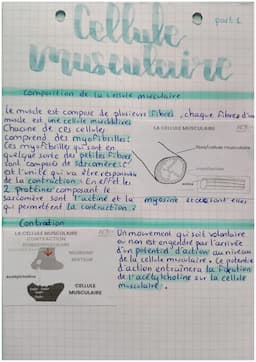 Cellule
part: 1
musculaire
Composition de la cellule musculaire
Le muscle est composé de plusieurs fibres, chaque fibres d'un
muscle est une cellule musculaire
Chacune de ces cellules
comprend des myofibrilles:
Ces myofibrilles qui sont en
quelque sorte des petites fibres
sont composé de sarcomère: c'
est l'unité qui va être responsable
de la contraction: En effet les
2 protéines composant le
sarcomère sont l'actine et la myosine
qui permettent la contraction:
LA CELLULE MUSCULAIRE
Contraction
LA CELLULE MUSCULAIRE
CONTRACTION
NEURONE
MOTEUR
Acétylcholine
CELLULE
MUSCULAIRE
Un mouvement qui soit volontaire
ou non est engendré par l'arrivée
d'un potentiel d'action au niveau
de la cellule musculaire. Ce potentiel
d'action entraînera la libération
de l'acétylcholine sur la cellule
musculaire.